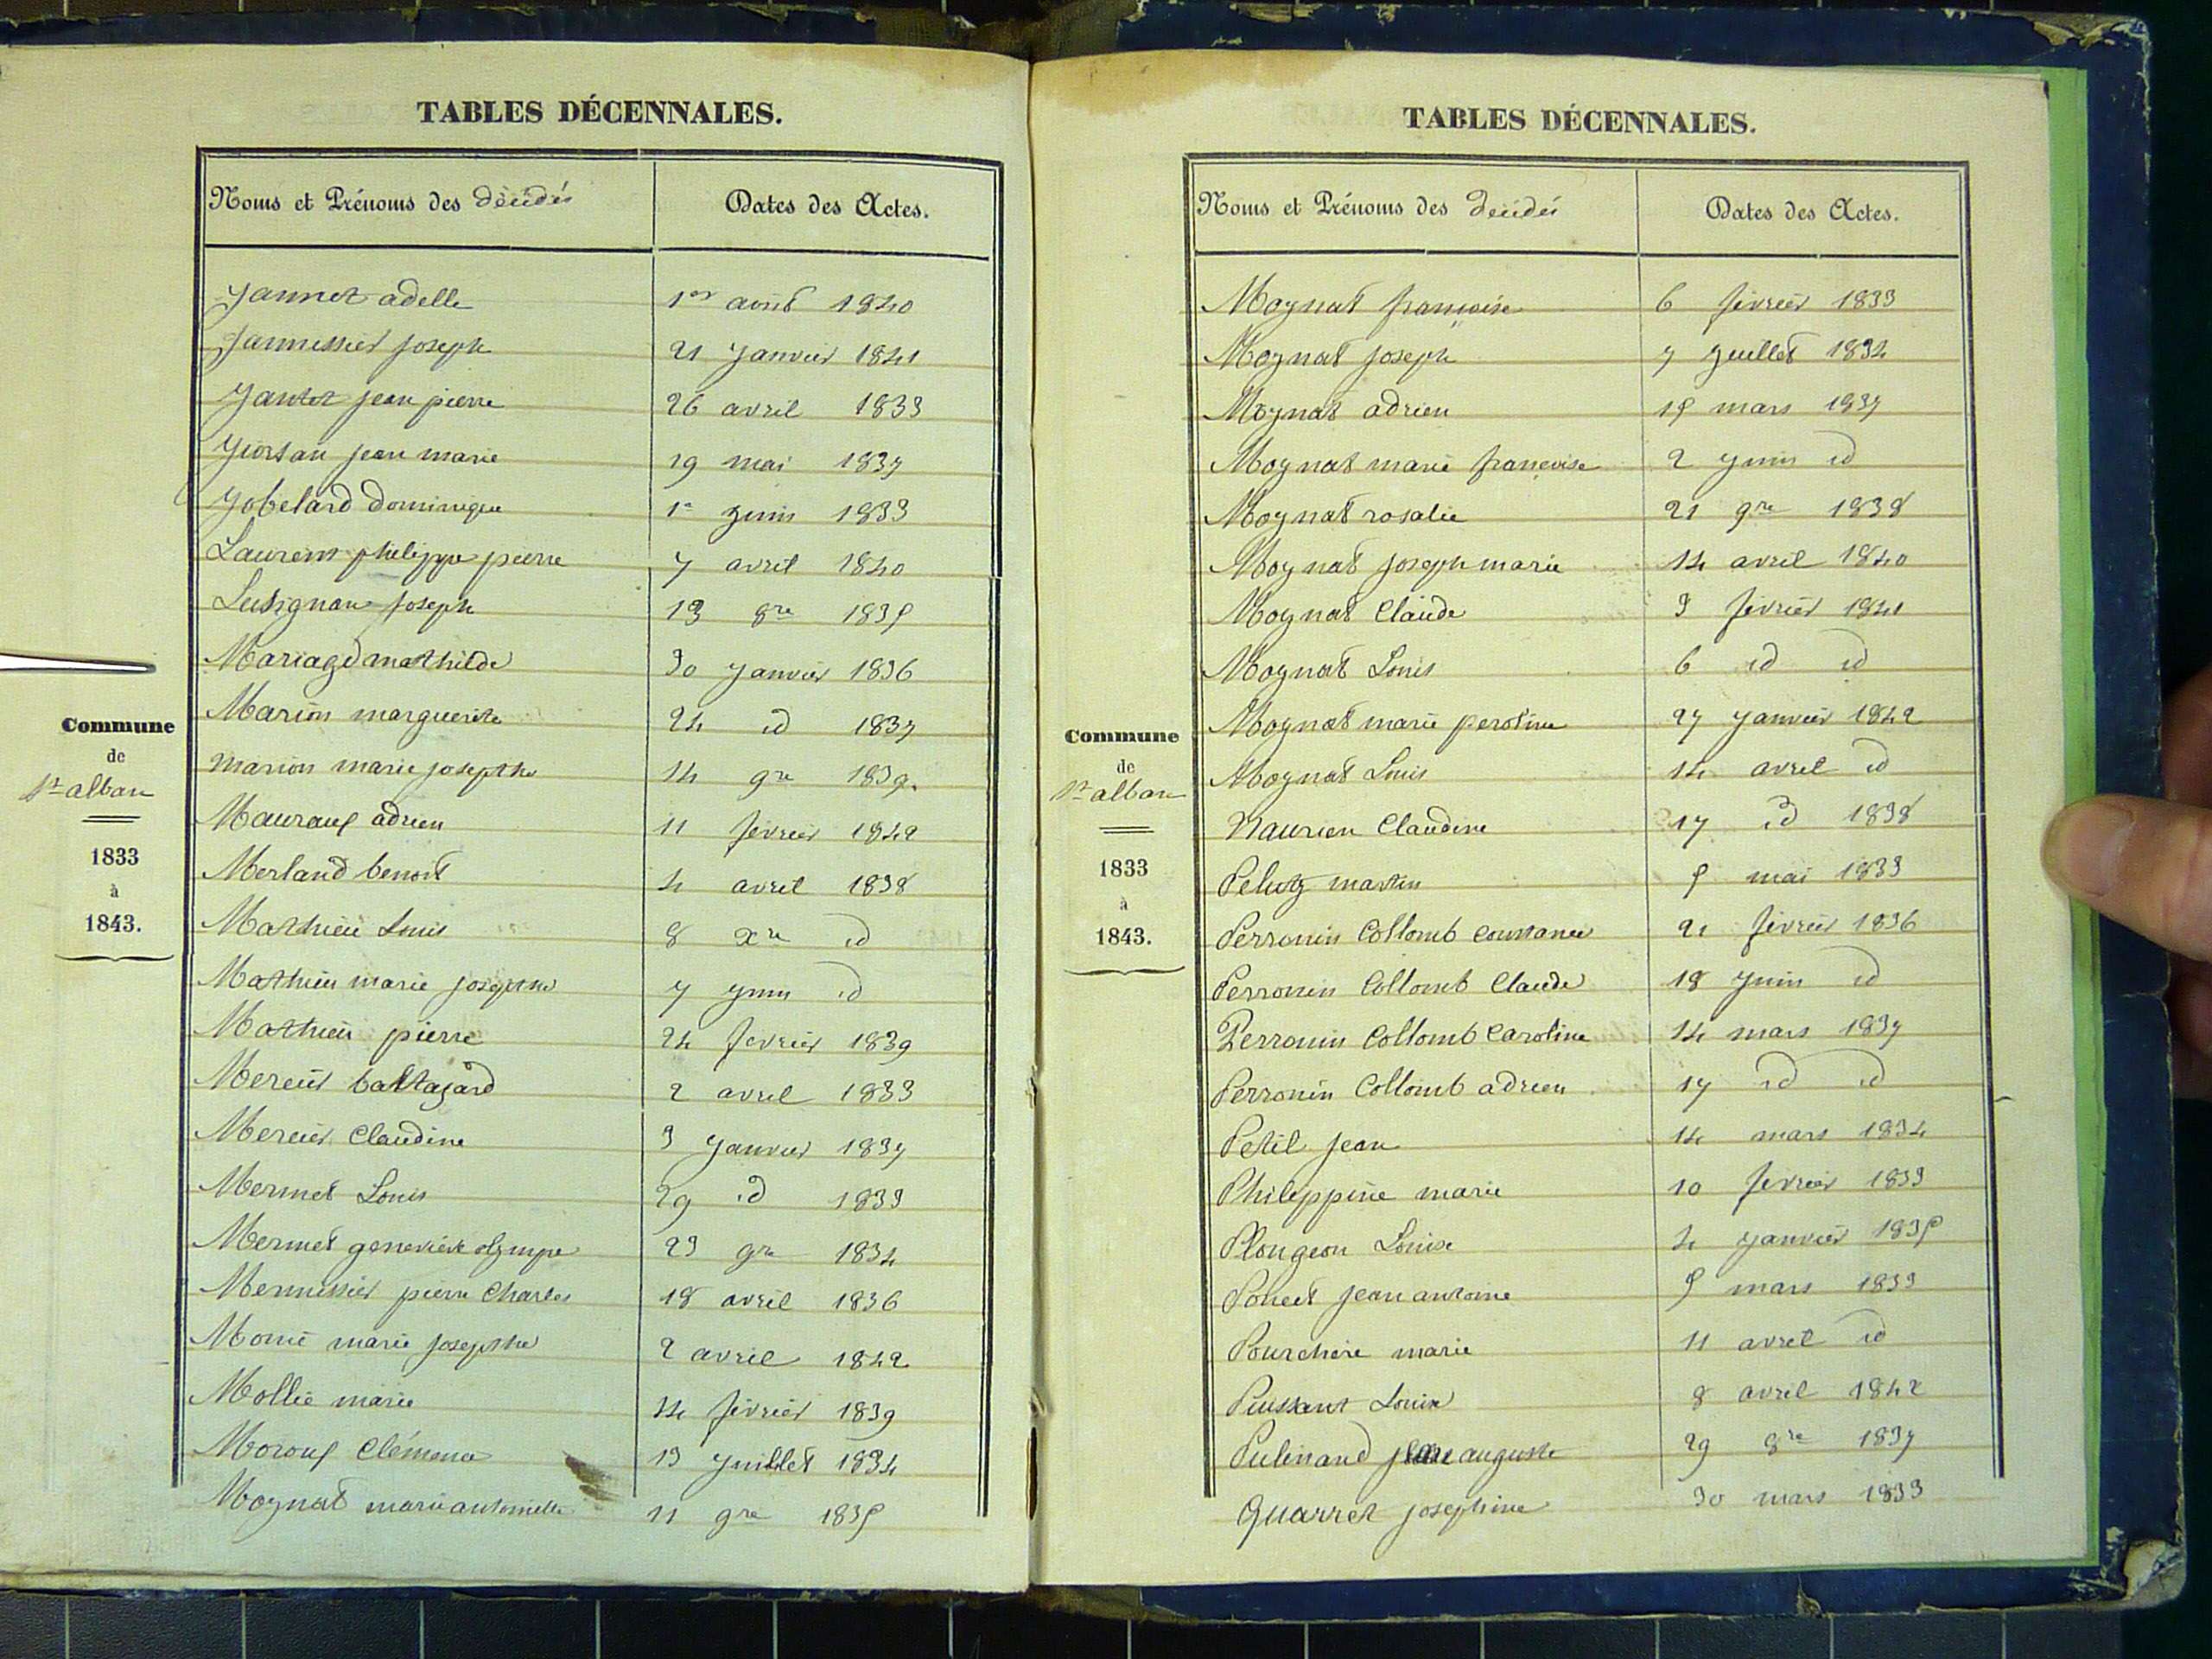 TABLES DÉCENNALES.
Noms et Prénoms des décédés Dates des Actes.
Jannet adelle 1er avril 1840
Jannessier joseph 21 janvier 1841
Jantet jean pierre 26 avril 1833
jean marie 19 mai 1837
Jobelard dominique 1er juin 1833
Laurent philippe pierre 7 avril 1840
Lusignan joseph 13 8re 1835
Mariage mathilde 30 janvier 1836
Marion marguerite 24 id 1837
marion marie josephte 14 9re 1839.
Mauraux adrien 11 février 1842
Merland benoit 4 avril 1838
Mathieu Louis 8 xre id
Mathieu marie josephte 7 juin id
Mathieu pierre 24 fevrier 1839
Mercier baltazard 2 avril 1833
Mercier Claudine 3 janvier 1837
Mermet Louis 29 id 1833
Mermet geneviève olympe 23 9re 1834
Mermissier pierre Charles 18 avril 1836
marie josephte 2 avril 1842
Mollie marie 14 février 1839
Moroux Clémence 13 juillet 1834
Moynat marie antoinette 11 9re 1835
Commune
de
St alban
1833
à
1843.
TABLES DÉCENNALES.
Noms et Prénoms des décédés Dates des Actes.
Moynat françoise 6 février 1833
Moynat joseph 7 juillet 1834
Moynat adrien 15 mars 1837
Moynat marie françoise 2 juin id
Moynat rosalie 21 9re 1838
Moynat joseph marie 14 avril 1840
Moynat Claude 3 février 1841
Moynat Louis 6 id id
Moynat marie peroline 27 janvier 1842
Moynat Louis 14 avril id
Naurien Claudine 17 id 1838
Pelutz martin 5 mai 1833
Perronin Collomb Constance 21 février 1836
Perronin Collomb Claude 18 juin id
Perronin Collomb Caroline 14 mars 1837
Perronin Collomb adrien 17 id id
Petit jean 14 mars 1834
Philippine marie 10 février 1833
Plongeon Louise 4 janvier 1835
Poncet jean antoine 5 mars 1833
Pourchère marie 11 avril id
Puissant Louise 8 avril 1842
Pulinand auguste 29 8re 1837
Quarret josephine 30 mars 1833
Commune
de
St alban
1833
à
1843.